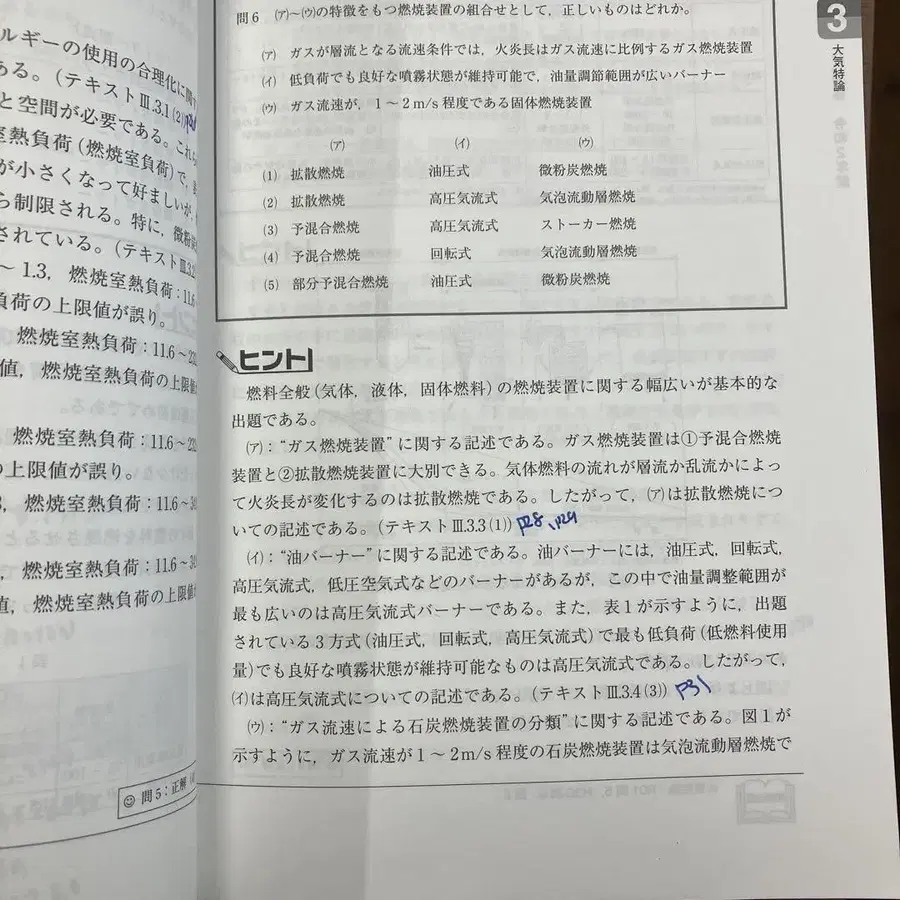 ルギーの使用の合理化に関
ある。(テキストⅢ.3.1(2))
と空間が必要である。これら
室熱負荷(燃焼室負荷)で,
が小さくなって好ましいが,
ら制限される。特に,微粉炭
されている。(テキストⅢ.3.2
~1.3,燃焼室熱負荷:11.6~
負荷の上限値が誤り。
燃焼室熱負荷:11.6~232
値,燃焼室熱負荷の上限値
燃焼室熱負荷:11.6~232
の上限値が誤り。
3,燃焼室熱負荷:11.6~
,燃焼室熱負荷:11.6~
値,燃焼室熱負荷の上限値
☺ 問5:正解
問6 ㋐~㋒の特徴をもつ燃焼装置の組合せとして,正しいものはどれか。
㋐ ガスが層流となる流速条件では,火炎長はガス流速に比例するガス燃焼装置
㋑ 低負荷でも良好な噴霧状態が維持可能で,油量調節範囲が広いバーナー
㋒ ガス流速が,1~2m/s程度である固体燃焼装置
㋐ ㋑ ㋒
(1) 拡散燃焼 油圧式 微粉炭燃焼
(2) 拡散燃焼 高圧気流式 気泡流動層燃焼
(3) 予混合燃焼 高圧気流式 ストーカー燃焼
(4) 予混合燃焼 回転式 気泡流動層燃焼
(5) 部分予混合燃焼 油圧式 微粉炭燃焼
ヒント
燃料全般(気体,液体,固体燃料)の燃焼装置に関する幅広いが基本的な
出題である。
㋐:“ガス燃焼装置”に関する記述である。ガス燃焼装置は①予混合燃焼
装置と②拡散燃焼装置に大別できる。気体燃料の流れが層流か乱流かによっ
て火炎長が変化するのは拡散燃焼である。したがって,㋐は拡散燃焼につ
いての記述である。(テキストⅢ.3.3(1)) P28、P29
㋑:“油バーナー”に関する記述である。油バーナーには,油圧式,回転式,
高圧気流式,低圧空気式などのバーナーがあるが,この中で油量調整範囲が
最も広いのは高圧気流式バーナーである。また,表1が示すように,出題
されている3方式(油圧式,回転式,高圧気流式)で最も低負荷(低燃料使用
量)でも良好な噴霧状態が維持可能なものは高圧気流式である。したがって,
㋑は高圧気流式についての記述である。(テキストⅢ.3.4(3)) P31
㋒:“ガス流速による石炭燃焼装置の分類”に関する記述である。図1が
示すように,ガス流速が1~2m/s程度の石炭燃焼装置は気泡流動層燃焼で
3
大気特論